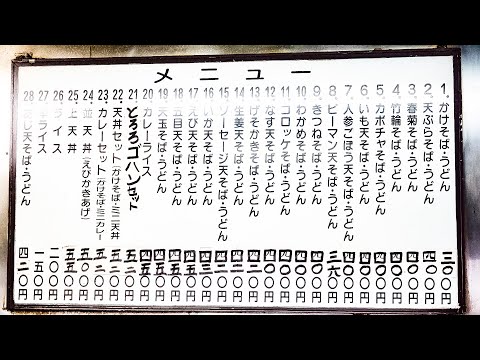 メニュー
1. かけそば・うどん 三〇〇円
2. 天ぷらそば・うどん 四〇〇円
3. 春菊そば・うどん 四〇〇円
4. 竹輪そば・うどん 四〇〇円
5. カボチャそば・うどん 四〇〇円
6. いも天そば・うどん 四〇〇円
7. 人参ごぼう天そば・うどん 四〇〇円
8. ピーマン天そば・うどん 三六〇円
9. きつねそば・うどん 四〇〇円
10. わかめそば・うどん 四〇〇円
11. コロッケそば・うどん 四〇〇円
12. なす天そば・うどん 四〇〇円
13. げそかきそば・うどん 四二〇円
14. 生姜天そば・うどん
15. ソーセージ天そば・うどん
16. いか天そば・うどん
17. えび天そば・うどん
18. 五目天そば・うどん
19. 天玉そば・うどん
20. カレーライス
21. とろろゴハンセット
22. 天丼セット(かけそば・ミニ天丼
23. カレーセット(かけそば・ミニカレー
24. 並天丼(えびかきあげ)
25. 上天丼
26. ライス 二〇〇円
27. ライス 一五〇円
28. 天そば・うどん 四二〇円